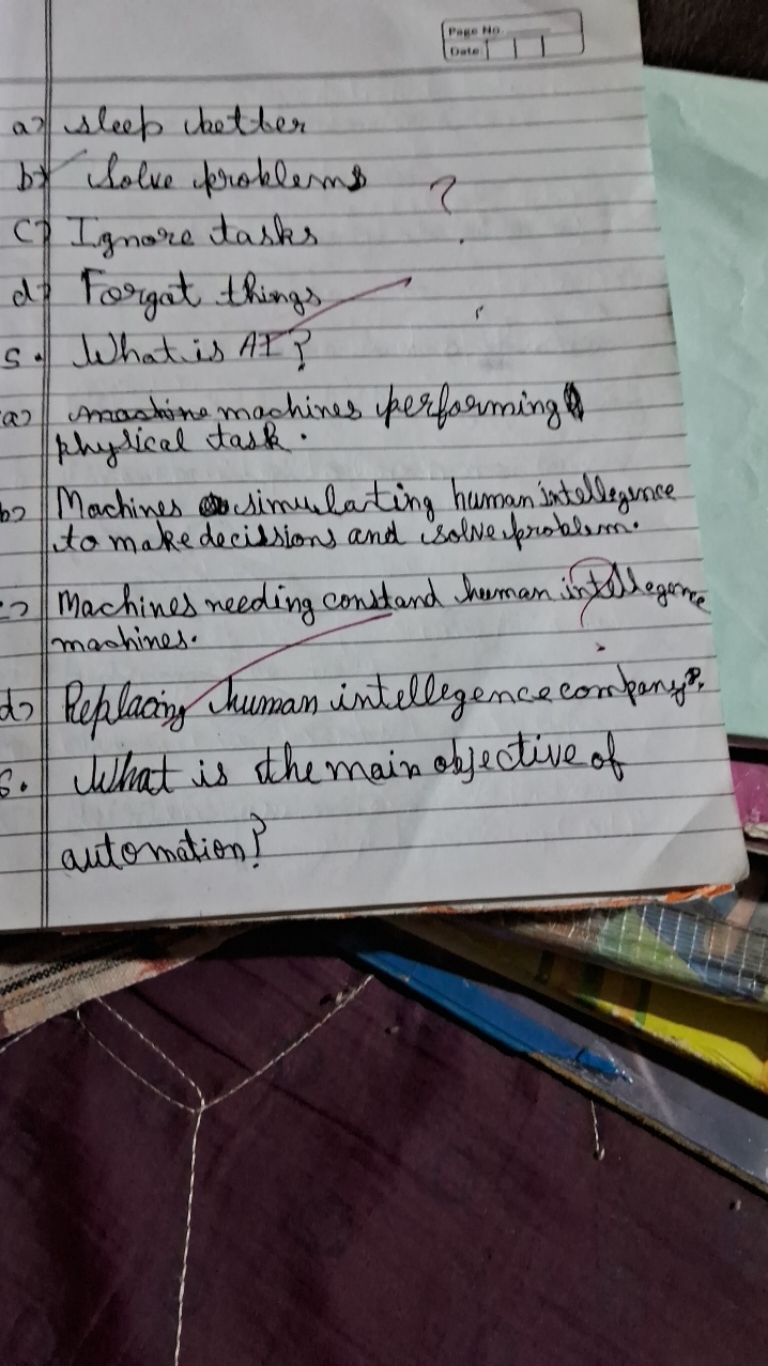 Page No.
Date
a) sleep better
b) solve problems
c) Ignore tasks
d) Forgat things
5. What is AI?
a) machines performing
physical task.
b) Machines simulating human intellegence
to make decissions and solve problem.
c) Machines needing constand human intellegence
machines.
d) Replacing human intellegence company.
6. What is the main objective of
automation?